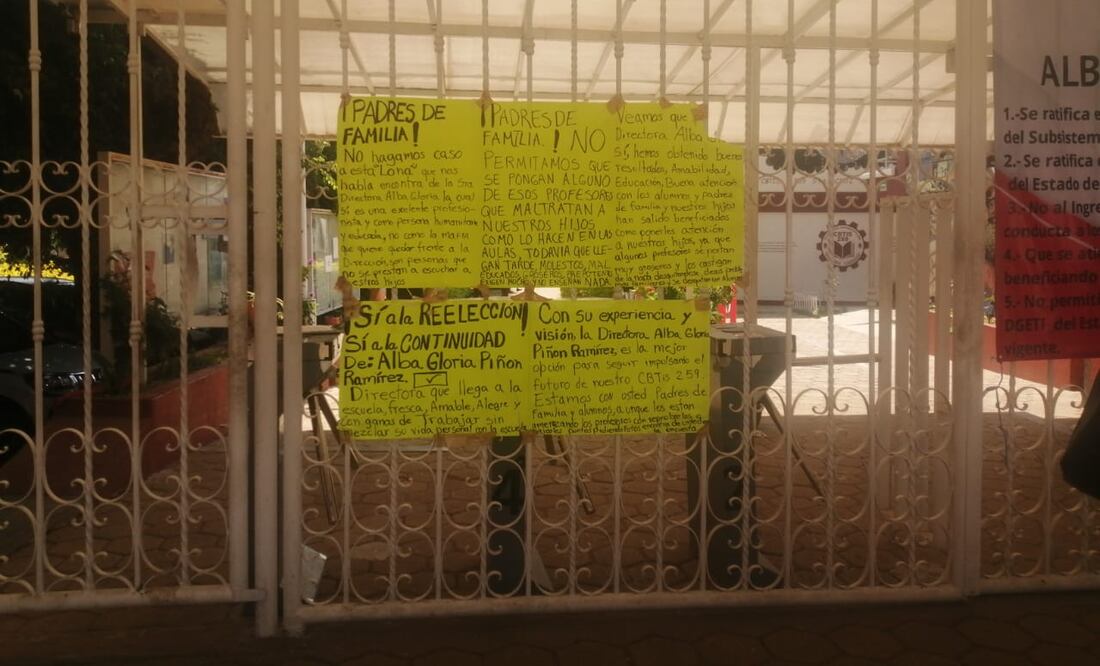 ¡PADRES DE
FAMILIA!
NO hagamos caso
a esta "Lona" que nos
habla encontra de la Sra.
Directora, Alba Gloria, la cual
Sí es una excelente profesio-
nista, y como persona humanitaria
y educada, no como la
que quiere quedar frente a la
Dirección, son personas que
no se prestan a escuchar a
nuestros hijos
¡PADRES DE
FAMILIA.! NO
PERMITAMOS QUE
SE PONGAN ALGUNO
DE ESOS PROFESORES
QUE MALTRATAN A
NUESTROS HIJOS
COMO LO HACEN EN LAS
AULAS, TODAVIA QUE LLE-
GAN TARDE, MOLESTOS, MAL
EDUCADOS, GROSEROS, PREPOTENTES
EXIGEN MUCHO Y NO ENSEÑAN NADA
Veamos que
Directora Alba
sí, hemos obtenido buenos
resultados, Amabilidad,
Educación, Buena atención
con los alumnos y padres
de familia y nuestros hijos
han salido beneficiados
como ponerles atención
a nuestros hijos, ya que
algunos profesores se portan
muy groseros y los castigan
de la nada
¡Sí a la REELECCIÓN!
Sí a la CONTINUIDAD
De: Alba Gloria Piñon
Ramírez. ✓
Directora que llega a la
escuela, fresca, Amable, Alegre y
con ganas de Trabajar sin
mezclar su vida personal con la escuela
Con su experiencia y
visión, la Directora, Alba Gloria
Piñon Ramírez, es la mejor
opción para seguir impulsando el
futuro de nuestro CBTis 259.
Estamos con usted Padres de
Familia y alumnos, a unque les estan
amenazando los profesores con reprobarlos
CBTIS
259
ALB
1.-Se ratifica e
del Subsistem
2.- Se ratifica
del Estado de
3.- No al Ingre
conducta a los
4.- Que se ati
beneficiando
5.- No permiti
DGETI del Est
vigente.
4